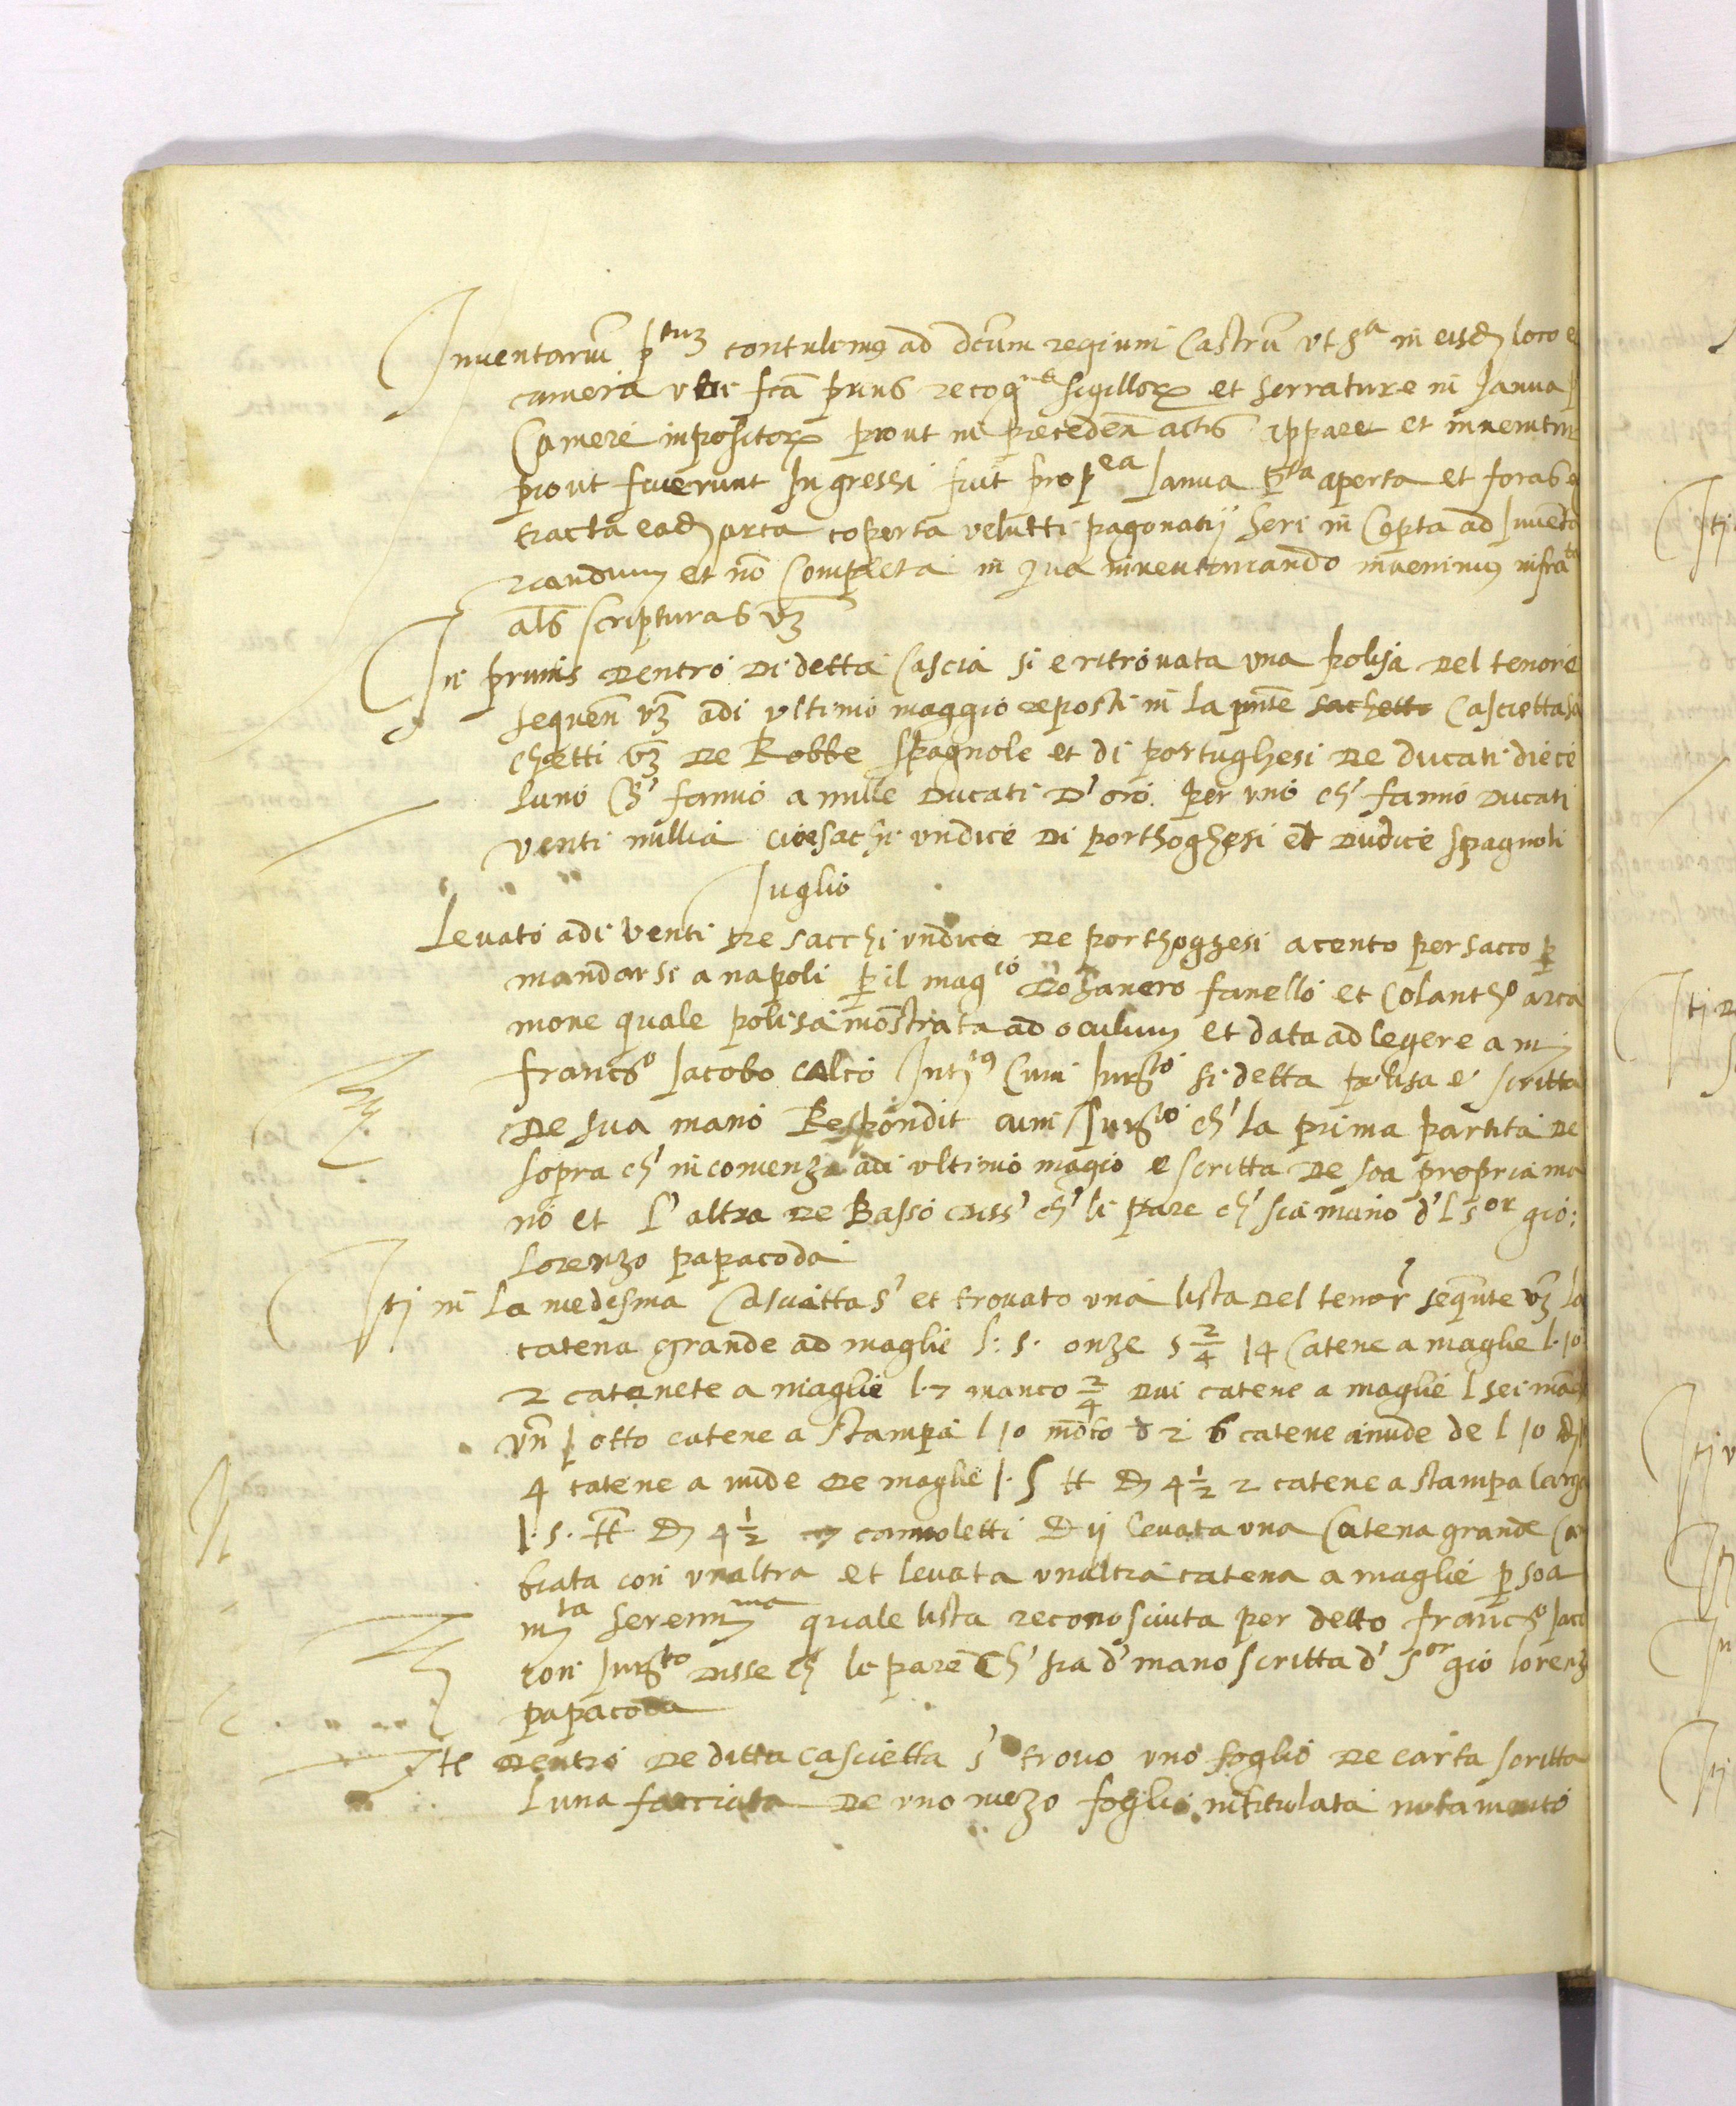 Inventariũ p̃tuȝ contulimus ad dc̃um regium Castrũ vt sᵃ in eisdȝ loco e
camera vbi fc̃a prius recogᵃ sigillorꝝ et serrature in Janua
Camere impositorꝝ prout in precedeñ actis appare et inveнitur
prout fuerunt Ingressi fuit propᵉᵃ Janua p̃ᵗᵃ aperta et foras e
tracta eadȝ arca coperta velutti pagonatij heri in Cepta ad Inventa
riandum et nõ Completa in qua inventariando invenimus infraᵗᵃ
als̃ scripturas vȝ
In primis dentro di detta Cascia si e ritrovata una polisa del tenore
sequen̄ vȝ adi ultimo maggio reposti in la pñte sachetto Casciettasa
chetti vȝ de Robbe spagnole et di portughesi de ducati diece
luno ch' fanno a mille ducati d'oro per uno ch' fanno ducati
venti millia cioe sachi undice di porthoghesi et dudice spagnoli
Juglio
Levato adi venti tre sacchi undice de porthoghesi a cento per sacco p
mandarsi a napoli p il magᶜᵒ Gianero fanello et Colanthᵒ arca
mone quale polisa mostrata ad oculum et data ad legere a m
francsᵒ Jacobo calco Intᵘˢ Cum Jurᵗᵒ si detta polisa e' scritta
de sua mano Respondit cum Jurᵗᵒ ch' la prima partita de
sopra ch' incomenza adi ultimo magio e scritta de soa propria ma
no et l'altra de Basso diss' ch' li pare ch' sia mano d'l sᵒʳ gio:
Lorenzo papacoda
Itȝ in la medesma Casciетta s' et trovato una lista del tenor' sequñte vȝ la
catena grande ad maglie l: 5. onze 5 2/4 14 Catene a maglie l. 10
2 catenete a maglie l. 7 manco 2/4 dui catene a maglie l sei mãc
otto catene a stampa l 10 mãco 2 6 catene anude de l 10
4 catene a nude de maglie l. 5 tt 4 1/2 2 catene a stampa larga
l. 5. tt 4 1/2 cannoletti D ij levata una Catena grande Ca
biata con unaltra et levata unaltra catena a maglie p soa
mᵗᵃ serenmᵐᵃ quale lista reconosciuta per detto francsᵒ Jaco
con Jurᵗᵒ disse ch' le pare ch' sia d' mano scritta d' sᵒʳ gio lorenz
papacoda
Itȝ dentro de ditta cascietta s' trovo uno foglio de carta scritta
luna facciata de uno mezo foglio intitulata notamento